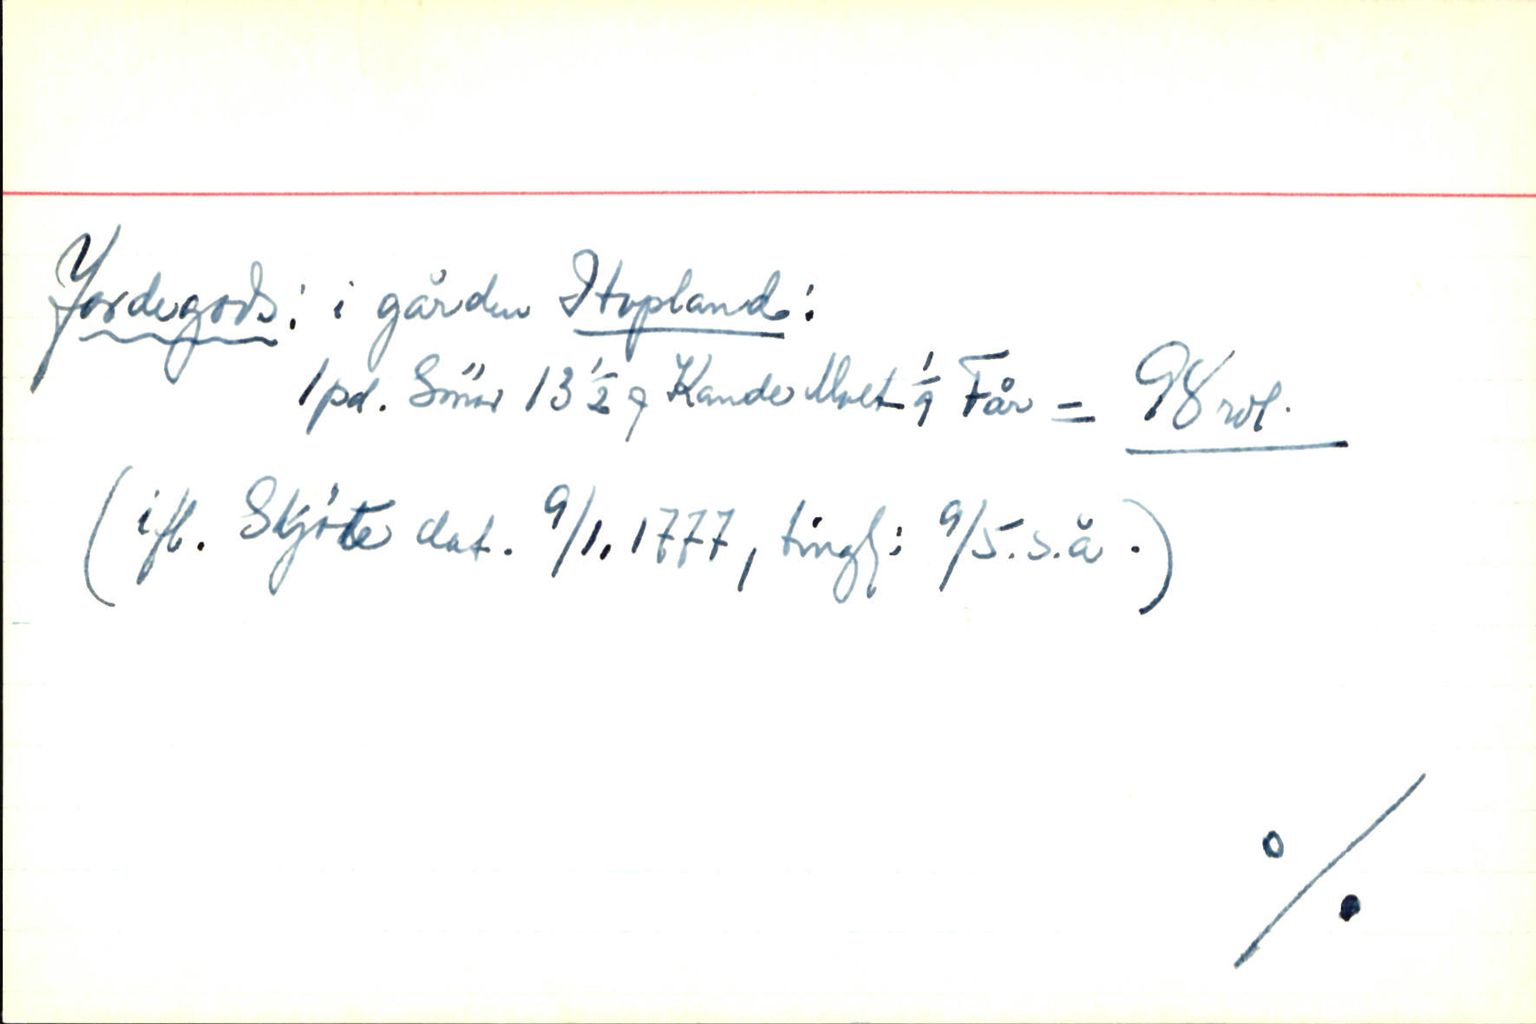 Jordegods: i gården Hopland:
1 pd. Smör 13 1/2 q Kande Malt 1/9 Får = 98 rdl.
(ifl. Skjöte dat. 9/1. 1777, tingl: 9/5. s.å.)
%